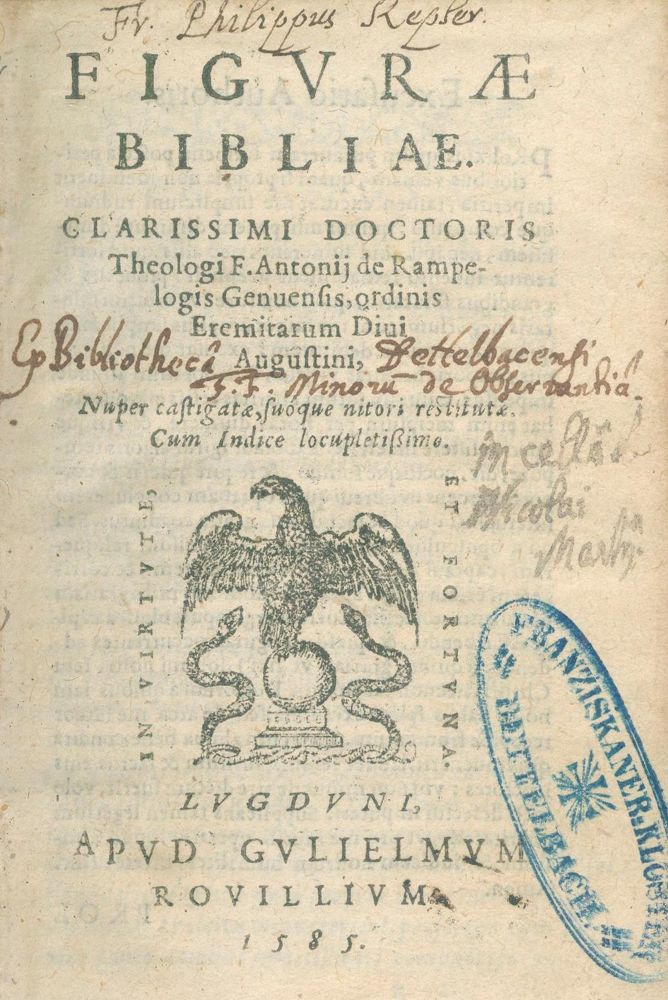 Fr. Philippus Kepler.
FIGVRÆ
BIBLIAE.
CLARISSIMI DOCTORIS
Theologi F. Antonij de Rampe-
logis Genuensis, ordinis
Eremitarum Diui
Augustini,
Ex Bibliothecâ Dettelbacensi
F.F. Minorũ de Observantiâ.
Nuper castigatæ, suóque nitori restitutæ.
Cum Indice locupletißimo.
in cellâ
Nicolai
IN VIRTVTE,
ET FORTVNA
LVGDVNI,
APVD GVLIELMVM
ROVILLIVM.
1585.
FRANZISKANER-KLOSTER
DETTELBACH